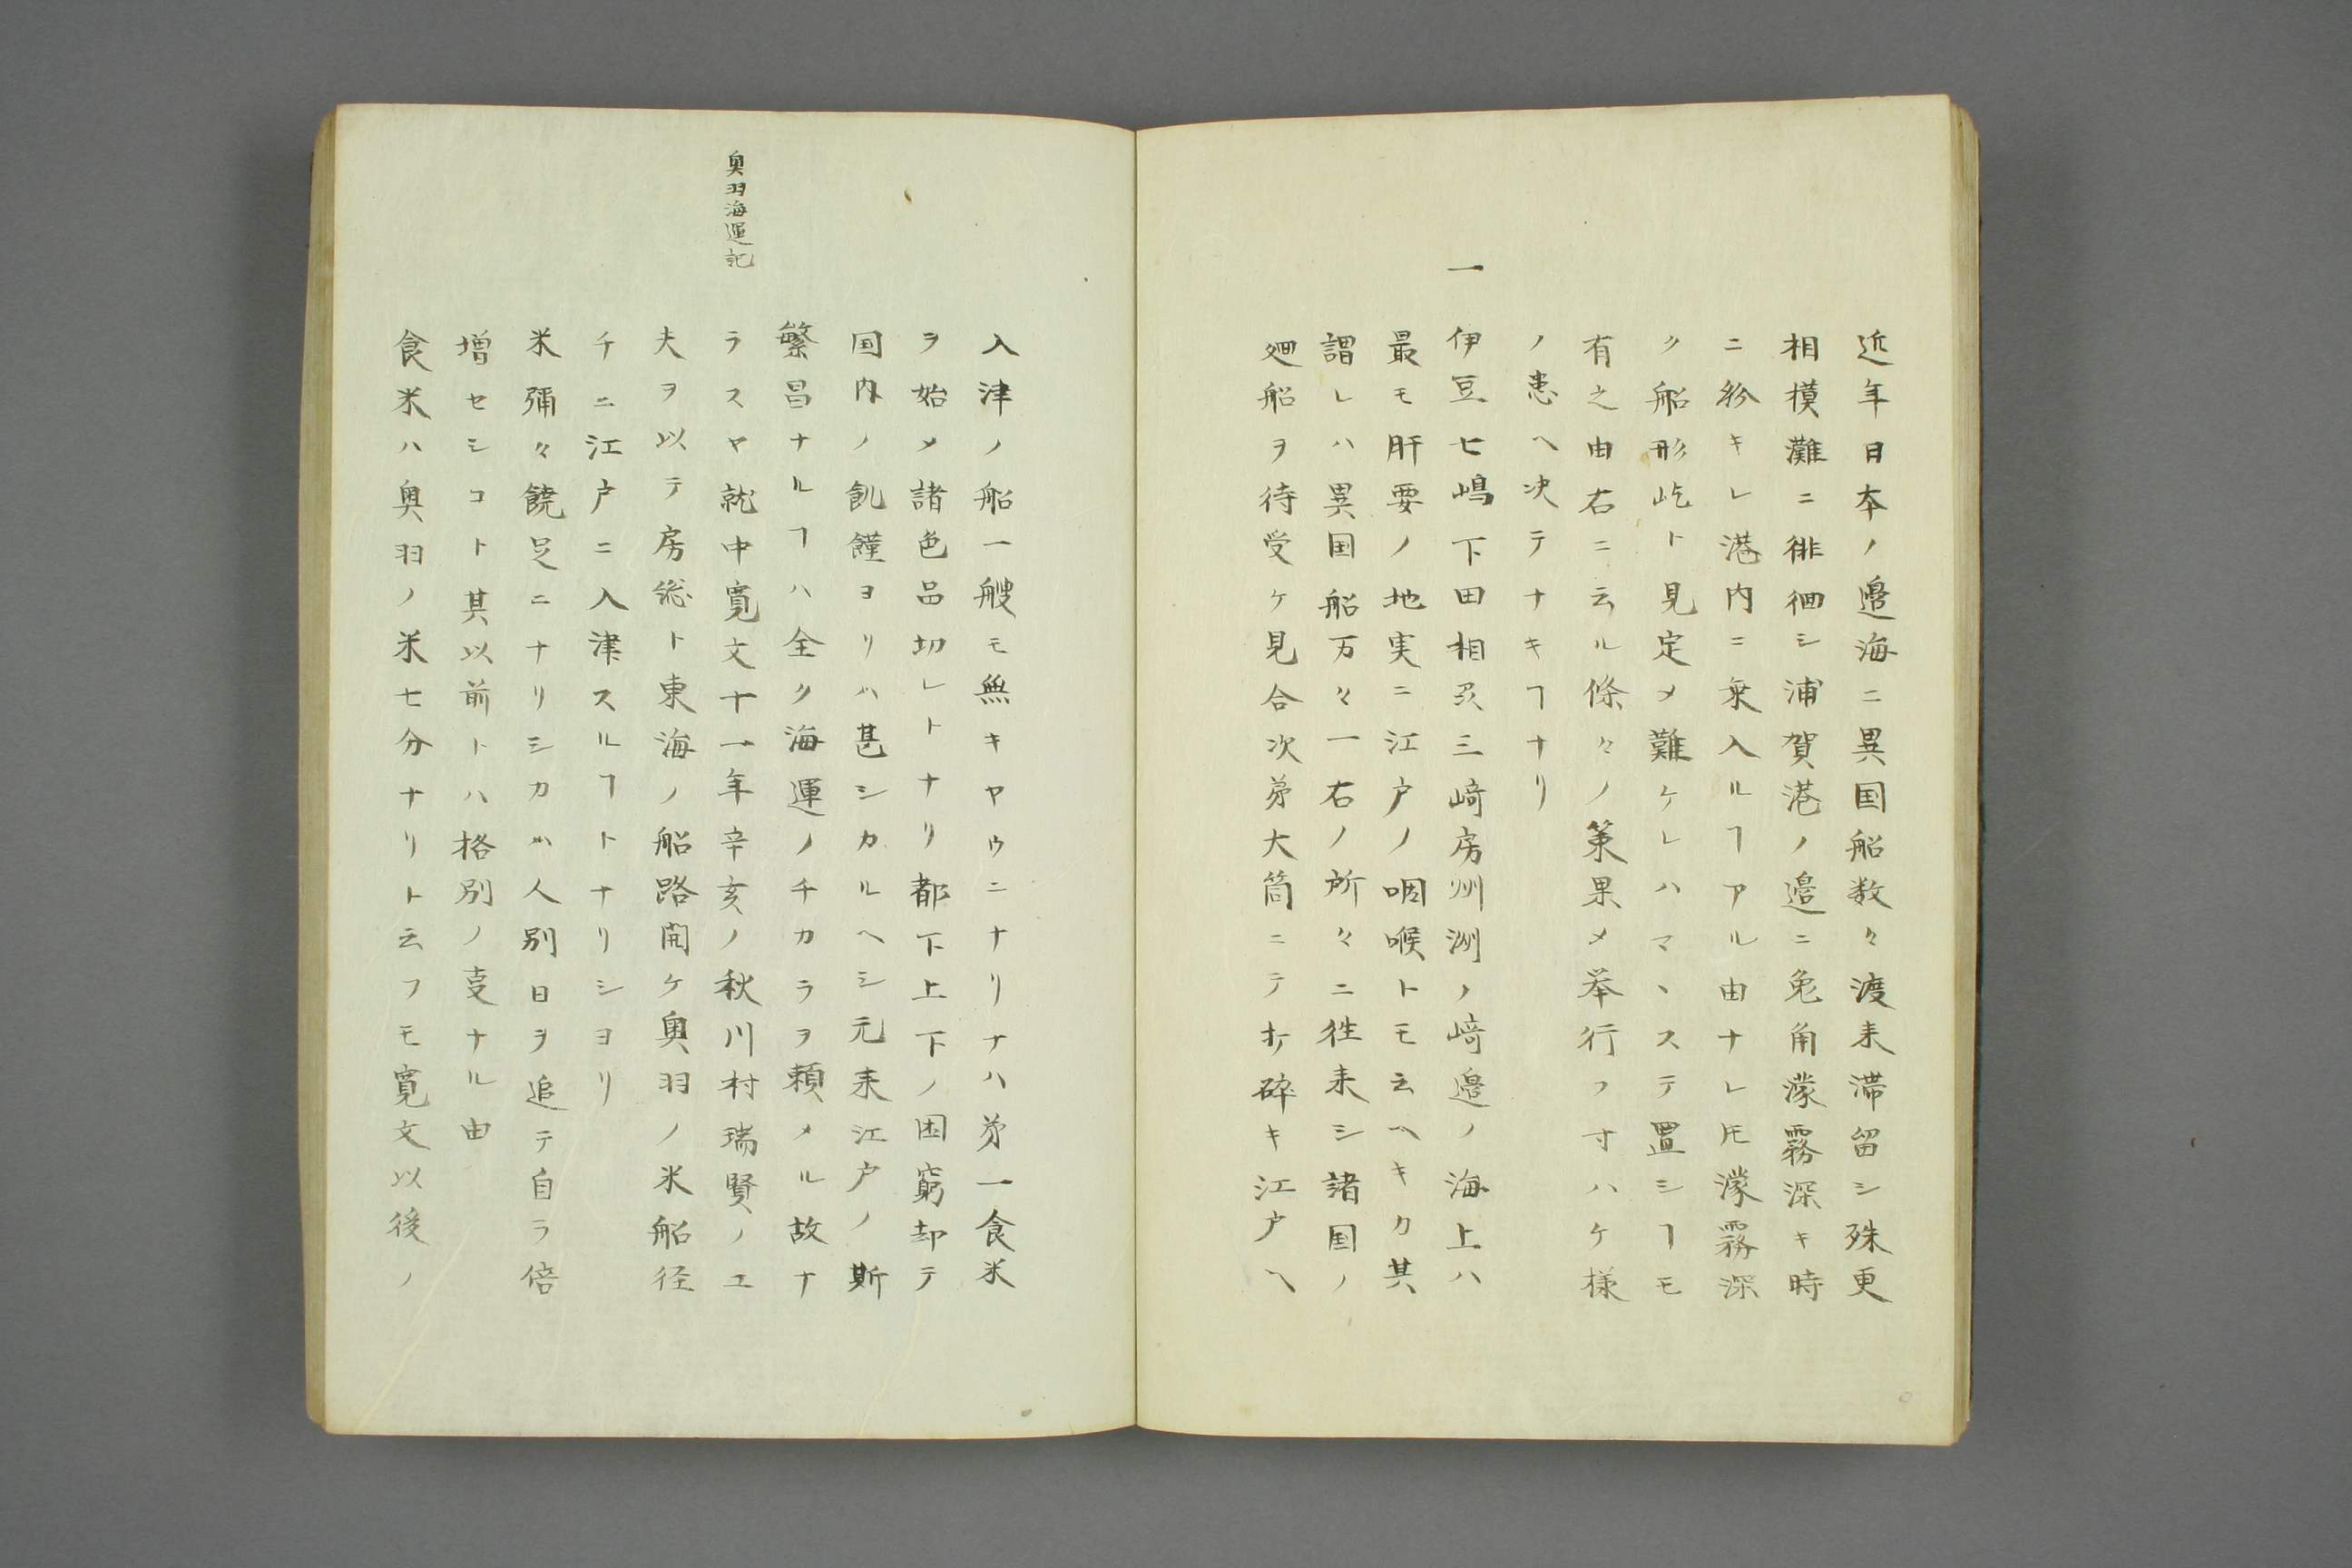 近年日本ノ邉海ニ異国船数々渡来滞留シ殊更
相模灘ニ徘徊シ浦賀港ノ邉ニ兎角濛霧深キ時
ニ紛キレ港内ニ乗入ルヿアル由ナレ𪜈濛霧深
ク船形屹ト見定メ難ケレハマヽステ置シヿモ
有之由右ニ云ル條々ノ策果メ挙行フ寸ハケ様
ノ患ヘ决テナキヿナリ
一伊豆七嶋下田相刕三﨑房州洲ノ﨑邉ノ海上ハ
最モ肝要ノ地実ニ江戸ノ咽喉トモ云ヘキカ其
謂レハ異国船万々一右ノ所々ニ徃来シ諸国ノ
廻船ヲ待受ケ見合次第大筒ニテ打碎キ江戸ヘ
入津ノ船一艘モ無キヤウニナリナハ第一食米
ヲ始メ諸色品切レトナリ都下上下ノ困窮却テ
国内ノ飢饉ヨリハ甚シカルヘシ元来江戸ノ斯
繁昌ナルヿハ全ク海運ノチカラヲ頼メル故ナ
ラスヤ就中寛文十一年辛亥ノ秋川村瑞賢ノエ
奥羽海運記
夫ヲ以テ房総ト東海ノ船路開ケ奥羽ノ米船径
チニ江戸ニ入津スルヿトナリシヨリ
米彌々饒足ニナリシカハ人別日ヲ追テ自ラ倍
増セシコト其以前トハ格別ノ㕝ナル由
食米ハ奥羽ノ米七分ナリト云フモ寛文以後ノ